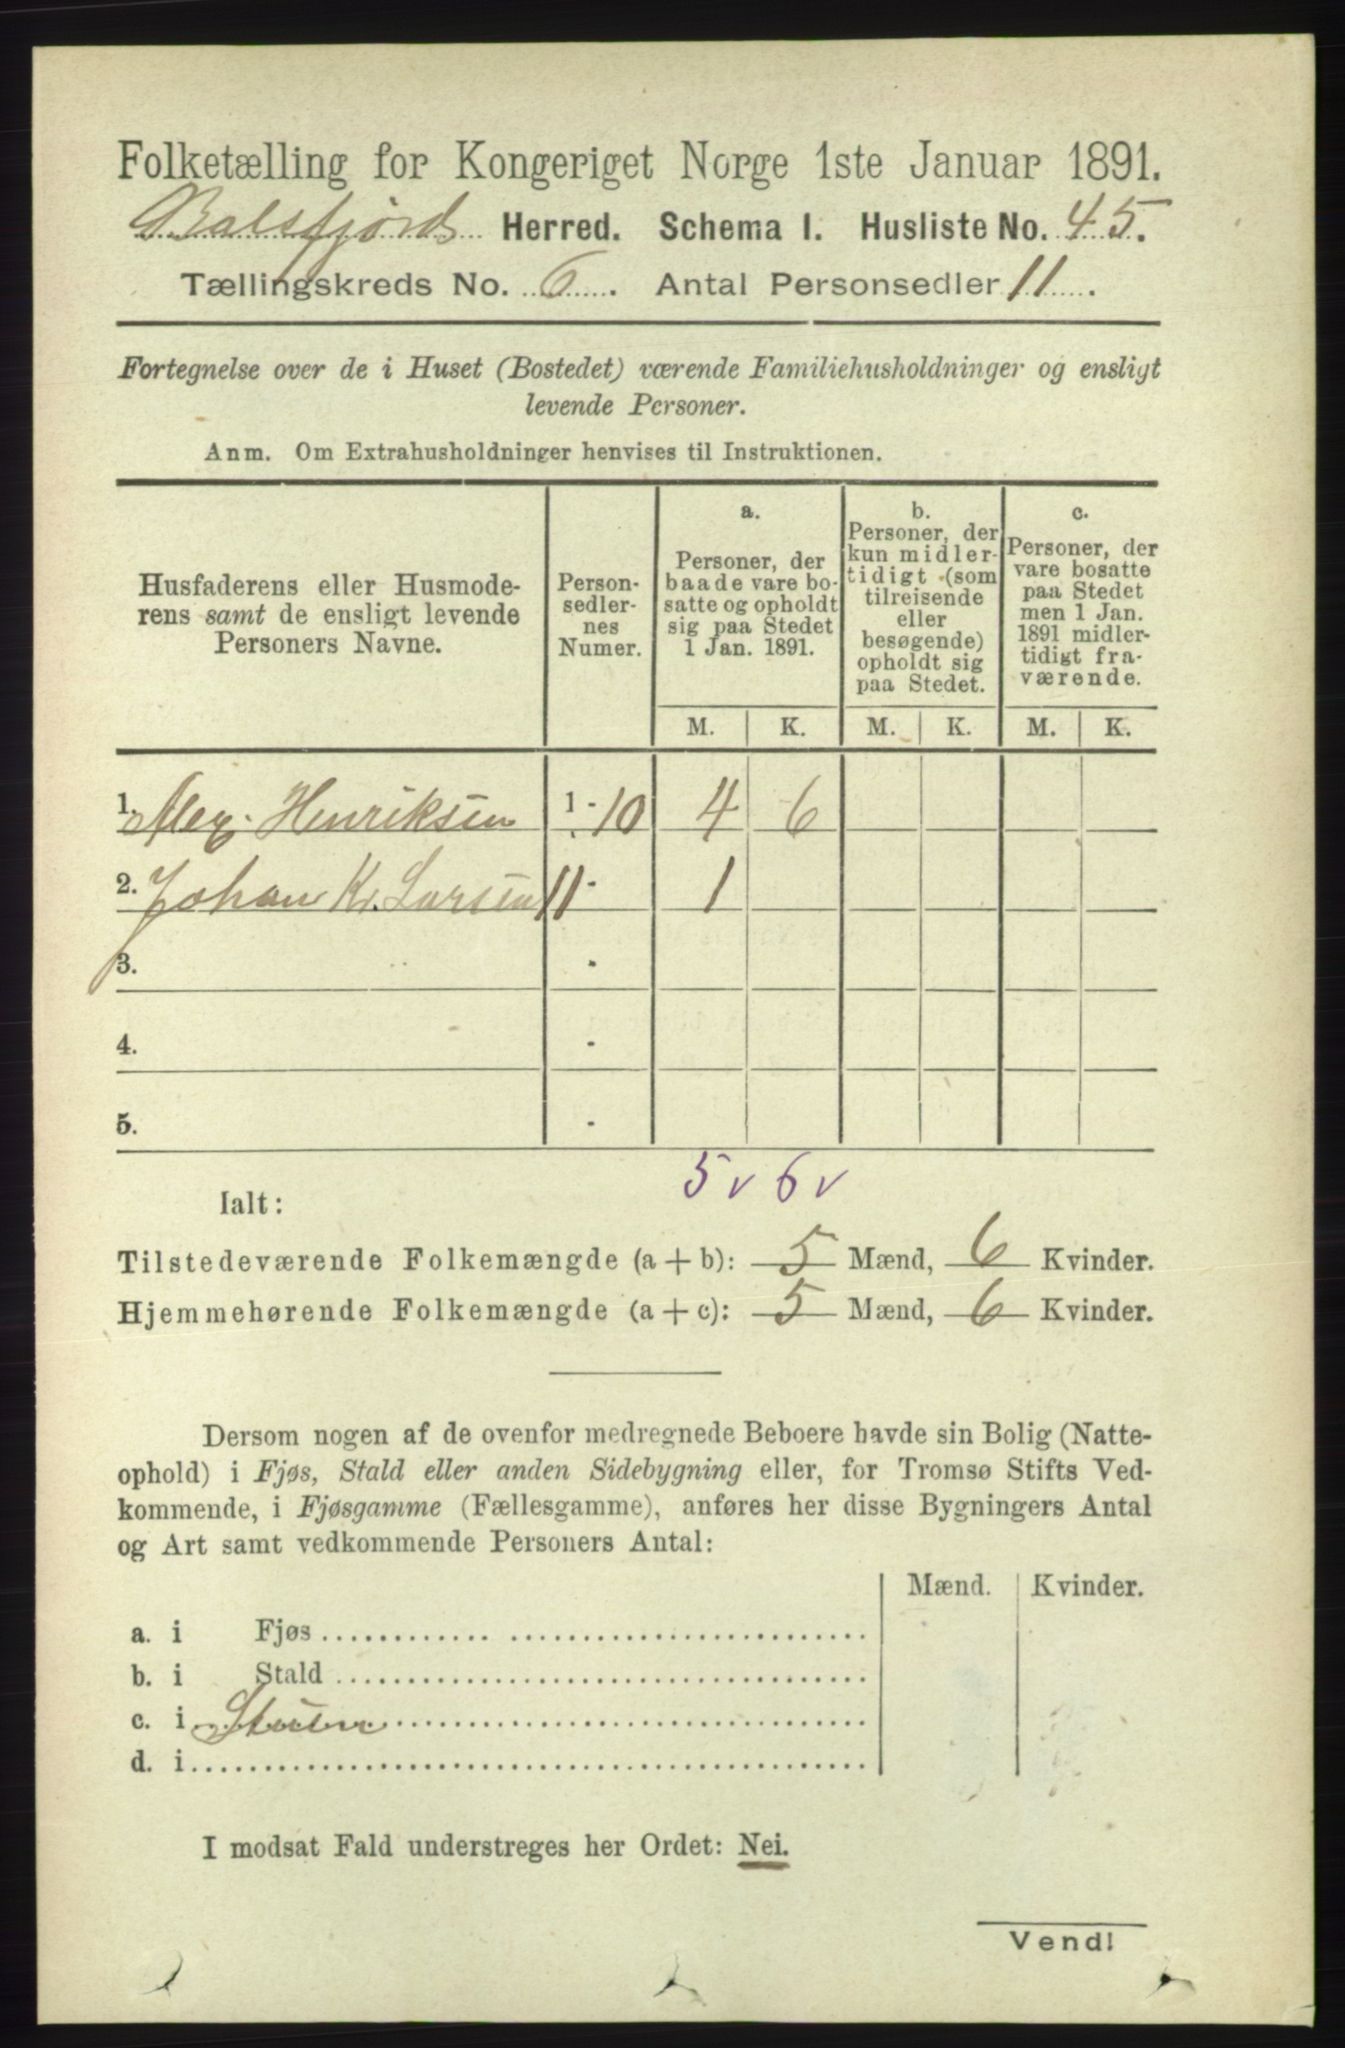 Folketælling for Kongeriget Norge 1ste Januar 1891.
Balsfjord Herred. Schema I. Husliste No. 45.
Tællingskreds No. 6. Antal Personsedler 11.
Fortegnelse over de i Huset (Bostedet) værende Familiehusholdninger og ensligt
levende Personer.
Anm. Om Extrahusholdninger henvises til Instruktionen.
Husfaderens eller Husmode-
rens samt de ensligt levende
Personers Navne.
Person-
sedler-
nes
Numer.
a.
Personer, der
baade vare bo-
satte og opholdt
sig paa Stedet
1 Jan. 1891.
b.
Personer, der
kun midler-
tidigt (som
tilreisende
eller
besøgende)
opholdt sig
paa Stedet.
c.
Personer, der
vare bosatte
paa Stedet
men 1 Jan.
1891 midler-
tidigt fra-
værende.
M. K. M. K. M. K.
1. Alex. Henriksen 1-10 4 6
2. Johan Kr. Larsen 11- 1
3. -
4. -
5. -
5 v 6 v
Ialt:
Tilstedeværende Folkemængde (a + b): 5 Mænd, 6 Kvinder.
Hjemmehørende Folkemængde (a + c): 5 Mænd, 6 Kvinder.
Dersom nogen af de ovenfor medregnede Beboere havde sin Bolig (Natte-
ophold) i Fjøs, Stald eller anden Sidebygning eller, for Tromsø Stifts Ved-
kommende, i Fjøsgamme (Fællesgamme), anføres her disse Bygningers Antal
og Art samt vedkommende Personers Antal:
Mænd. Kvinder.
a. i Fjøs
b. i Stald
c. i
d. i
I modsat Fald understreges her Ordet: Nei.
Vend!